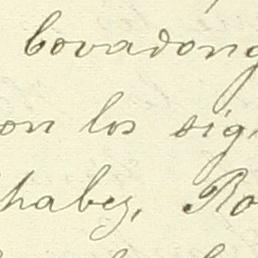 bovadong
on los sig
habez, Ro